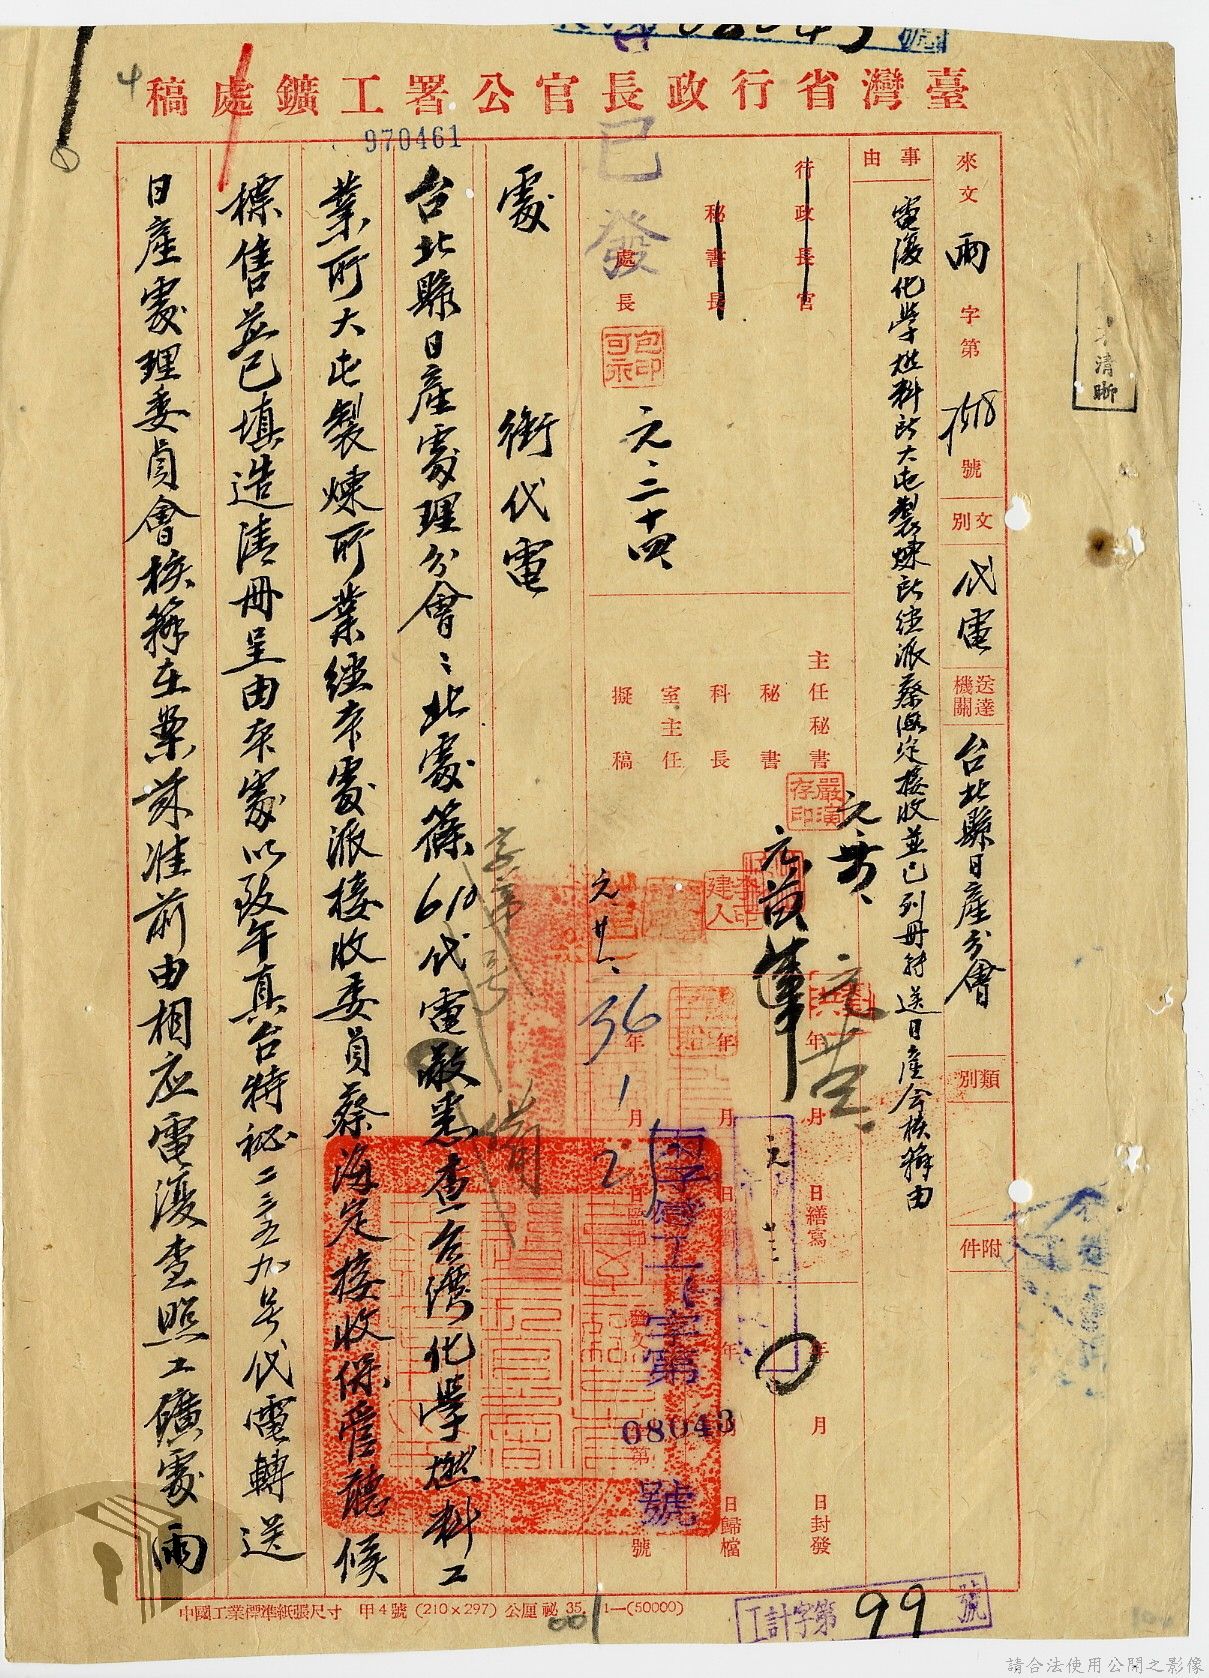 臺灣省行政長官公署工鑛處稿
970461
來文 雨字第7518號
文別 代電
送達機關 台北縣日產分會
類別
附件
事由
電復化學燃料所大屯製煉所經派蔡海定接收並已列冊轉送日產会核辦由
行政長官
秘書長
處長
已發
元、二十四
主任秘書
秘書
科長
室主任
擬稿
嚴演存印
36年1月21日
月 日繕寫
年 月 日封發
日歸檔
工字第
08043
號
處 銜代電
台北縣日產處理分會：北處篠610代電敬悉查台灣化學燃料工
業所大屯製煉所業經本處派接收委員蔡海定接收保管聽候
標售並已填造清冊呈由本處以致午真台特秘二三五九号代電轉送
日產處理委員會核辦在案茲准前由相应電復查照工礦處雨
中國工業標準紙張尺寸 甲4號 (210×297) 公厘 祕 35. 1—(50000)
工計字第99號
清晰
請合法使用公開之影像